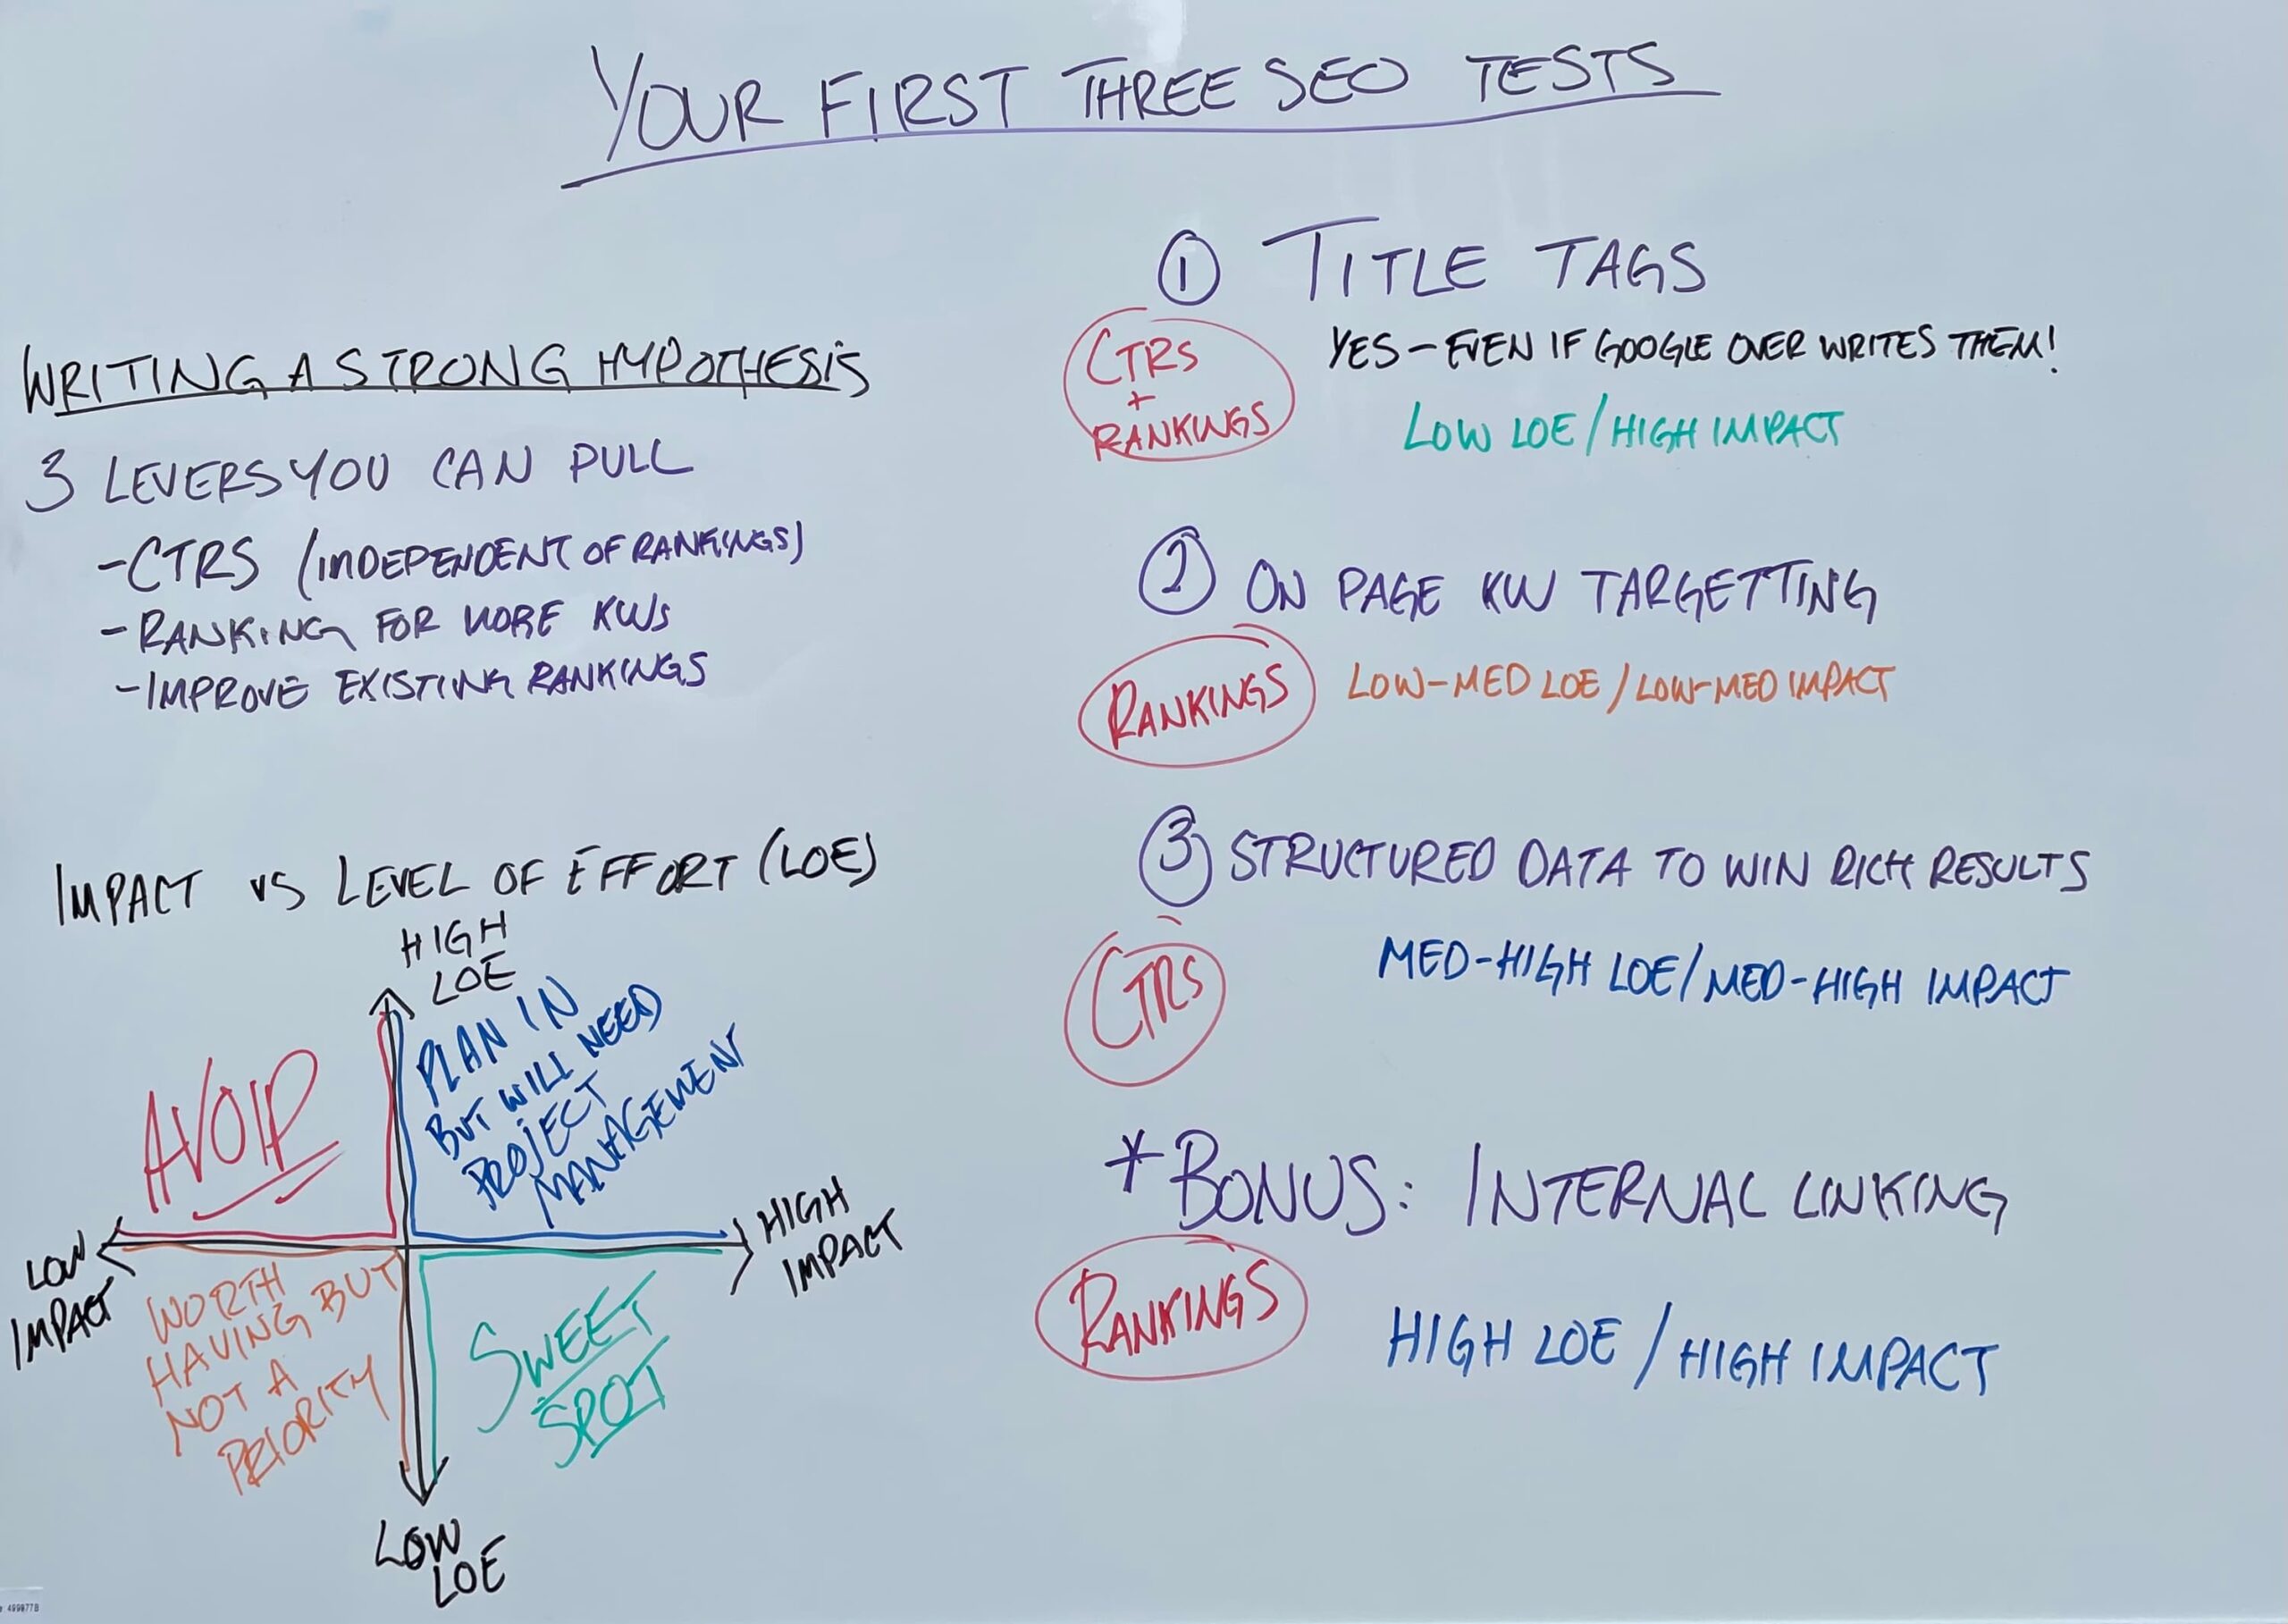 YOUR FIRST THREE SEO TESTS
WRITING A STRONG HYPOTHESIS
3 LEVERS YOU CAN PULL
-CTRS (INDEPENDENT OF RANKINGS)
-RANKING FOR MORE KWS
-IMPROVE EXISTING RANKINGS
IMPACT VS LEVEL OF EFFORT (LOE)
HIGH
LOE
AVOID
PLAN IN
BUT WILL NEED
PROJECT
MANAGEMENT
LOW
IMPACT
HIGH
IMPACT
WORTH
HAVING BUT
NOT A
PRIORITY
SWEET
SPOT
LOW
LOE
1 TITLE TAGS
CTRS
+
RANKINGS
YES - EVEN IF GOOGLE OVER WRITES THEM!
LOW LOE / HIGH IMPACT
2 ON PAGE KW TARGETTING
RANKINGS
LOW-MED LOE / LOW-MED IMPACT
3 STRUCTURED DATA TO WIN RICH RESULTS
CTRS
MED-HIGH LOE/MED-HIGH IMPACT
* BONUS: INTERNAL LINKING
RANKINGS
HIGH LOE / HIGH IMPACT